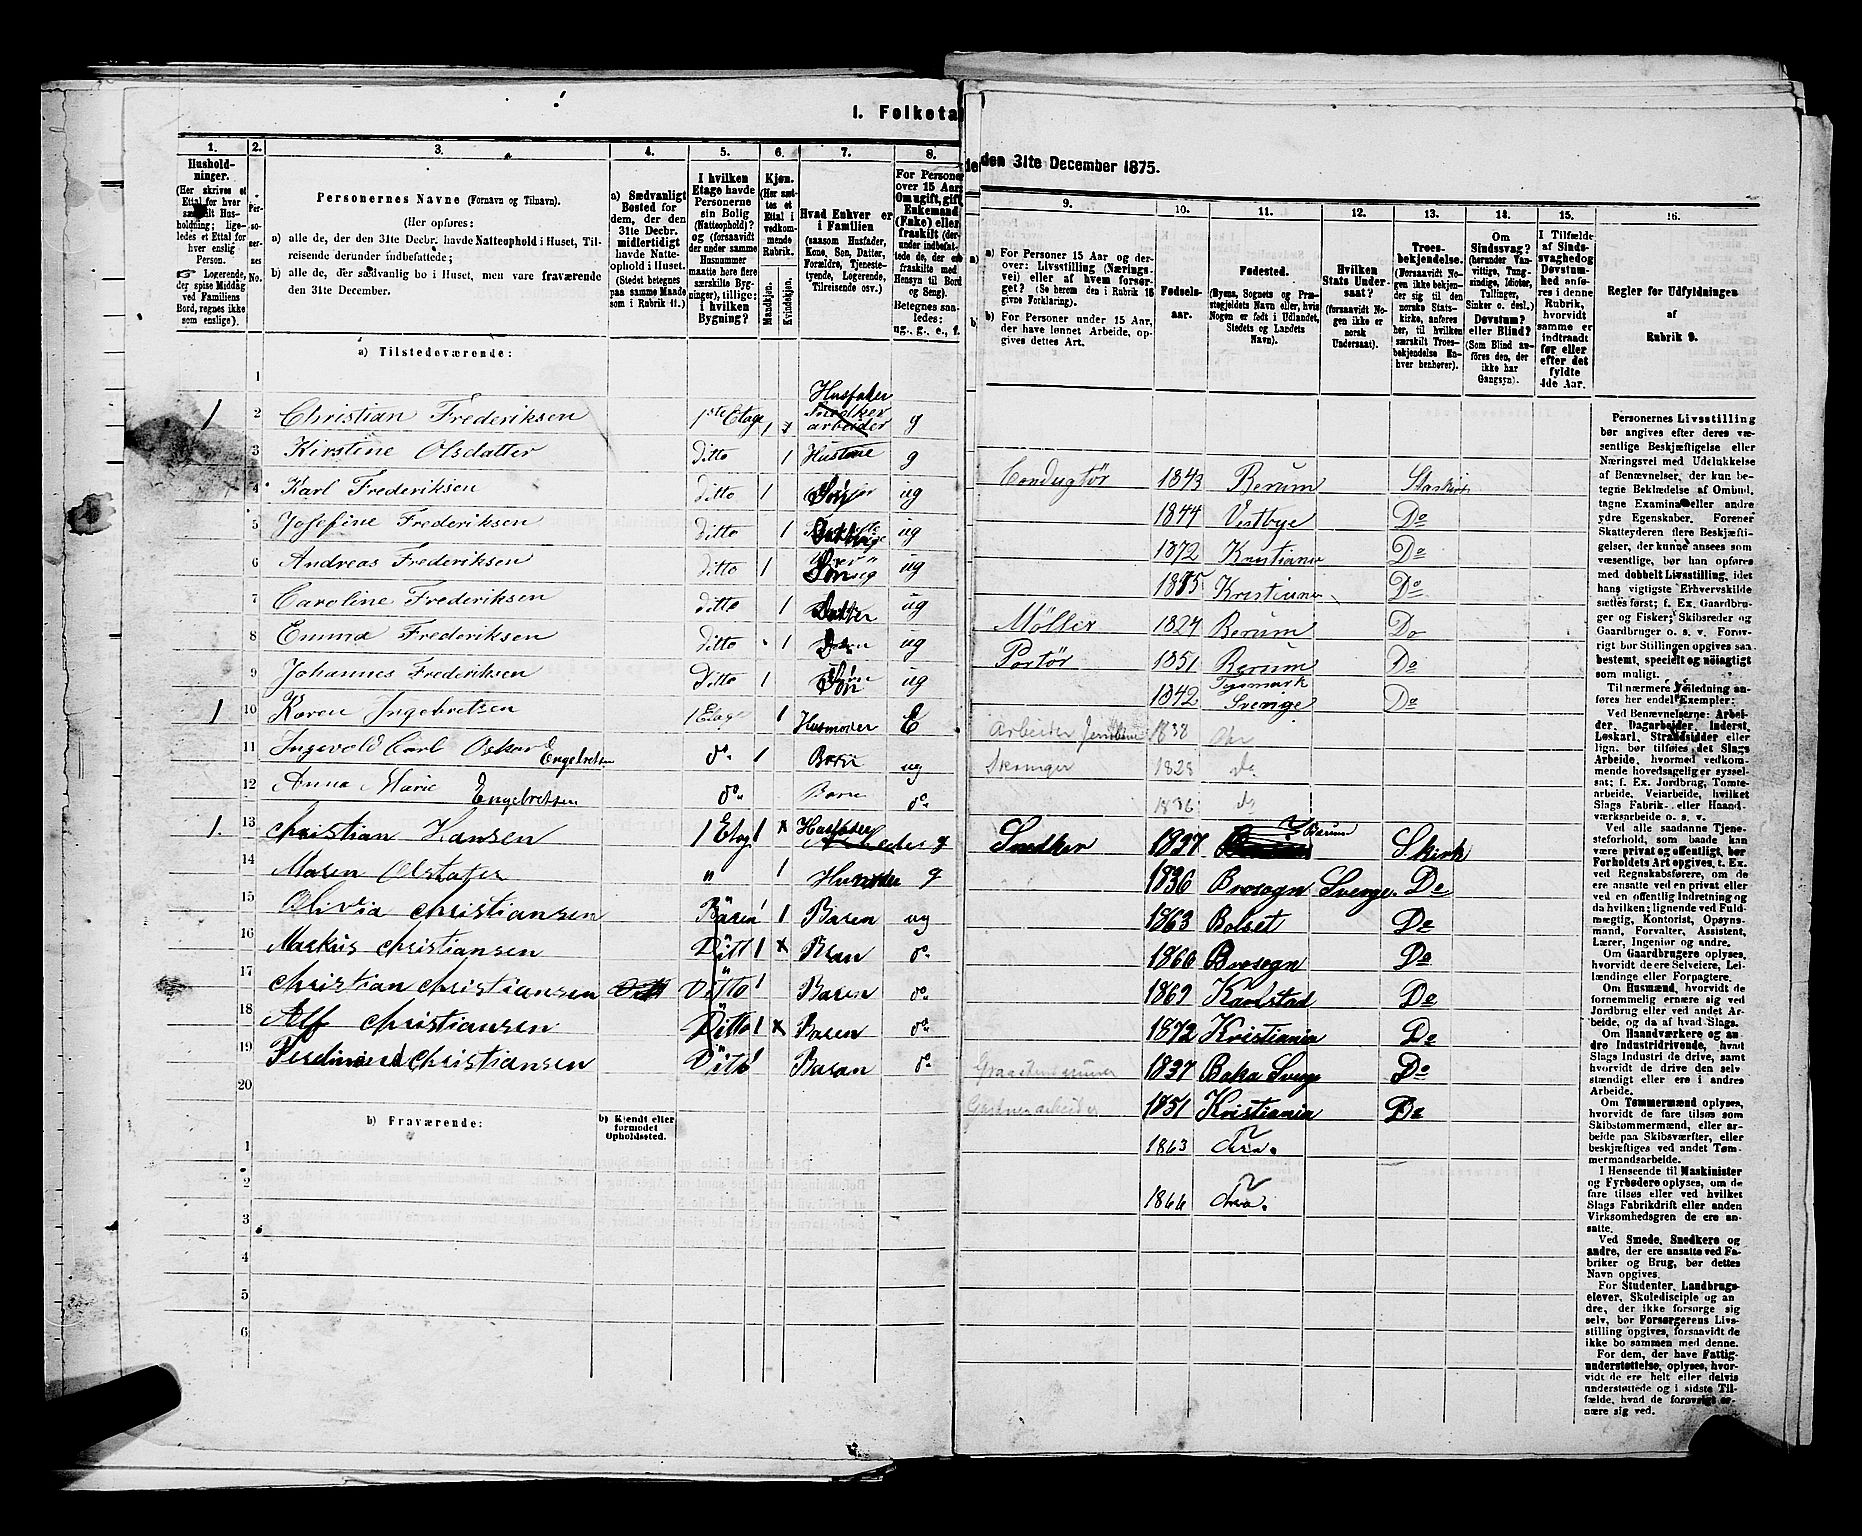 I. Folketa
1.
Hushold-
ninger.
(Her skrives et
Ettal for hver
særskilt Hus-
holdning; lige-
ledes et Ettal for
hver enslig
Person.
Logerende,
der spise Middag
ved Familiens
Bord, regnes ikke
som enslige).
2.
Per-
so-
ner-
nes
No.
3.
Personernes Navne (Fornavn og Tilnavn).
(Her opføres:
a) alle de, der den 31te Decbr. havde Natteophold i Huset, Til-
reisende derunder indbefattede;
b) alle de, der sædvanlig bo i Huset, men vare fraværende
den 31te December.
4.
a) Sædvanligt
Bosted for
dem, der den
31te Decbr.
midlertidigt
havde Natte-
ophold i Huset.
(Stedet betegnes
paa samme Maade
som i Rubrik 11.)
5.
I hvilken
Etage havde
Personerne
sin Bolig
(Natteophold)?
og (forsaavidt
der under samme
Husnummer
maatte høre flere
særskilte Byg-
ninger), tillige:
i hvilken
Bygning?
6.
Kjøn.
(Her sæt-
tes et
Ettal i
vedkom-
mende
Rubrik.
Mandkjøn.
Kvindekjøn.
7.
Hvad Enhver er
i Familien
(saasom Husfader,
Kone, Søn, Datter,
Forældre, Tjeneste-
tyende, Logerende,
Tilreisende osv.)
8.
For Personer
over 15 Aar:
Om ugift, gift,
Enkemand
(Enke) eller
fraskilt (der-
under indbefat-
tede de, der ere
fraskilte med
Hensyn til Bord
og Seng).
Betegnes saa-
ledes:
ug., g., e., f.
a) Tilstedeværende:
1
1 2 Christian Frederiksen 1ste Etage 1 Husfader Snedker arbeider g
3 Kirstine Olsdatter Ditto 1 g
4 Karl Frederiksen Ditto 1 Søn ug
5 Josefine Frederiksen Ditto 1 ug
6 Andreas Frederiksen Ditto 1 Søn ug
7 Caroline Frederiksen Ditto 1 Datter ug
8 Emma Frederiksen Ditto 1 ug
9 Johannes Frederiksen Ditto 1 Søn ug
1 10 Karen Ingebretsen 1 Etage 1 Husmoder E
11 Ingevold Carl Oskar Engebretsen do 1 Barn ug
12 Anna Marie Engebretsen do Barn do
1. 13 Christian Hansen 1 Etag 1 x Husfader Arbeder g
14 Maren Olstater " 1 g
15 Olivia Christiansen 1 Baren ug
16 Markus Christiansen Ditt 1 x Baran do
17 Christian Christiansen Ditto 1 Baren do
18 Alf Christiansen Ditto 1 x Baren do
19 Ferdinand Christiansen Ditto 1 Baran do
20
b) Fraværende:
b) Kjendt eller
formodet
Opholdssted.
1
2
3
4
5
6
den 31te December 1875.
9.
a) For Personer 15 Aar og der-
over: Livsstilling (Nærings-
vei) eller af hvem forsør-
get? (Se herom den i Rubrik 16
givne Forklaring).
b) For Personer under 15 Aar,
der have lønnet Arbeide, op-
gives dettes Art.
10.
Fødsels-
aar.
11.
Fødested.
(Byens, Sognets og Præ-
stegjeldets Navn eller, hvis
Nogen er født i Udlandet,
Stedets og Landets
Navn).
12.
Hvilken
Stats Under-
saat?
(forsaavidt No-
gen ikke er
norsk
Undersaat).
13.
Troes-
bekjendelse.
(Forsaavidt No-
gen ikke bekjen-
der sig til den
norske Stats-
kirke, anføres
her, til hvilken
særskilt Troes-
bekjendelse En-
hver henhører).
14.
Om
Sindssvag?
(herunder Van-
vittige, Tung-
sindige, Idioter,
Tullinger,
Sinker o. desl.)
Døvstum?
eller Blind?
(Som Blind an-
føres den, der
ikke har
Gangsyn).
15.
I Tilfælde
af Sinds-
svaghed og
Døvstum-
hed anfø-
res i denne
Rubrik,
hvorvidt
samme er
indtraadt
før eller
efter det
fyldte
4de Aar.
16.
Regler for Udfyldningen
af
Rubrik 9.
Condugtør 1843 Berum Staskirk
1844 Vestbye Do
1872 Kristiania Do
1875 Kristiania Do
Møller 1824 Berum Do
Portør 1851 Berum Do
1842 Sverige Do
Arbeider 1838
1828 do
1836 do
Snedker 1837 Berum Skirk
1836 Brosogn Sverge Do
1863 Bolset Do
1860 Brosogn Do
1869 Karlstad Do
1872 Kristiania Do
1837 Sverge Do
1851 Kristiania Do
1863
1866
Personernes Livsstilling
bør angives efter deres væ-
sentlige Beskjæftigelse eller
Næringsvei med Udelukkelse
af Benævnelser, der kun be-
tegne Beklædelse af Ombud,
tagne Examina eller andre
ydre Egenskaber. Forener
Skatteyderen flere Beskjæfti-
gelser, der kunne ansees som
væsentlige, bør han opføres
med dobbelt Livsstilling, idet
hans vigtigste Erhvervskilde
sættes først; f. Ex. Gaardbru-
ger og Fisker; Skibsreder og
Gaardbruger o. s. v. Forøv-
rigt bør Stillingen opgives saa
bestemt, specielt og nøiagtigt
som muligt.
Til nærmere Veiledning an-
føres her endel Exempler:
Ved Benævnelserne: Arbei-
der, Dagarbeider, Inderst,
Løskarl, Strandsidder eller
lign. bør tilføies det Slags
Arbeide, hvormed vedkom-
mende hovedsagelig er syssel-
sat; f. Ex. Jordbrug, Tomte-
arbeide, Veiarbeide, hvilket
Slags Fabrik- eller Haand-
værksarbeide o. s. v.
Ved alle saadanne Tjene-
steforhold, som baade kan
være privat og offentligt, bør
Forholdets Art opgives, t. Ex.
ved Regnskabsførere, om de
ere ansatte ved en privat eller
ved en offentlig Indretning og
da hvilken; lignende ved Fuld-
mægtig, Kontorist, Opsyns-
mand, Forvalter, Assistent,
Lærer, Ingeniør og andre.
Om Gaardbrugere oplyses,
hvorvidt de ere Selveiere, Lei-
lændinge eller Forpagtere.
Om Husmænd, hvorvidt de
fornemmelig ernære sig ved
Jordbrug eller ved andet Ar-
beide, og da af hvad Slags.
Om Haandværkere og an-
dre Industridrivende, hvad
Slags Industri de drive, samt
hvorvidt de drive den selv-
stændigt eller ere i andres
Arbeide.
Om Tømmermænd oplyses,
hvorvidt de fare tilsøs som
Skibstømmermænd, eller ar-
beide paa Skibsværfter, eller
beskjæftiges ved andet Tøm-
mermandsarbeide.
I Henseende til Maskinister
og Fyrbødere oplyses, om de
fare tilsøs eller ved hvilket
Slags Fabrikdrift eller anden
Virksomhedsgren de ere an-
satte.
Ved Smede, Snedkere og
andre, der ere ansatte ved Fa-
briker og Brug, bør dettes
Navn opgives.
For Studenter, Landbrugs-
elever, Skoledisciple og an-
dre, der ikke forsørge sig
selv, bør Forsørgerens Livs-
stilling opgives, forsaavidt de
ikke bo sammen med denne.
For dem, der have Fattig-
understøttelse, oplyses, hvor-
vidt de ere helt eller delvis
understøttede og i sidste Til-
fælde, hvad de forøvrigt er-
nære sig ved.